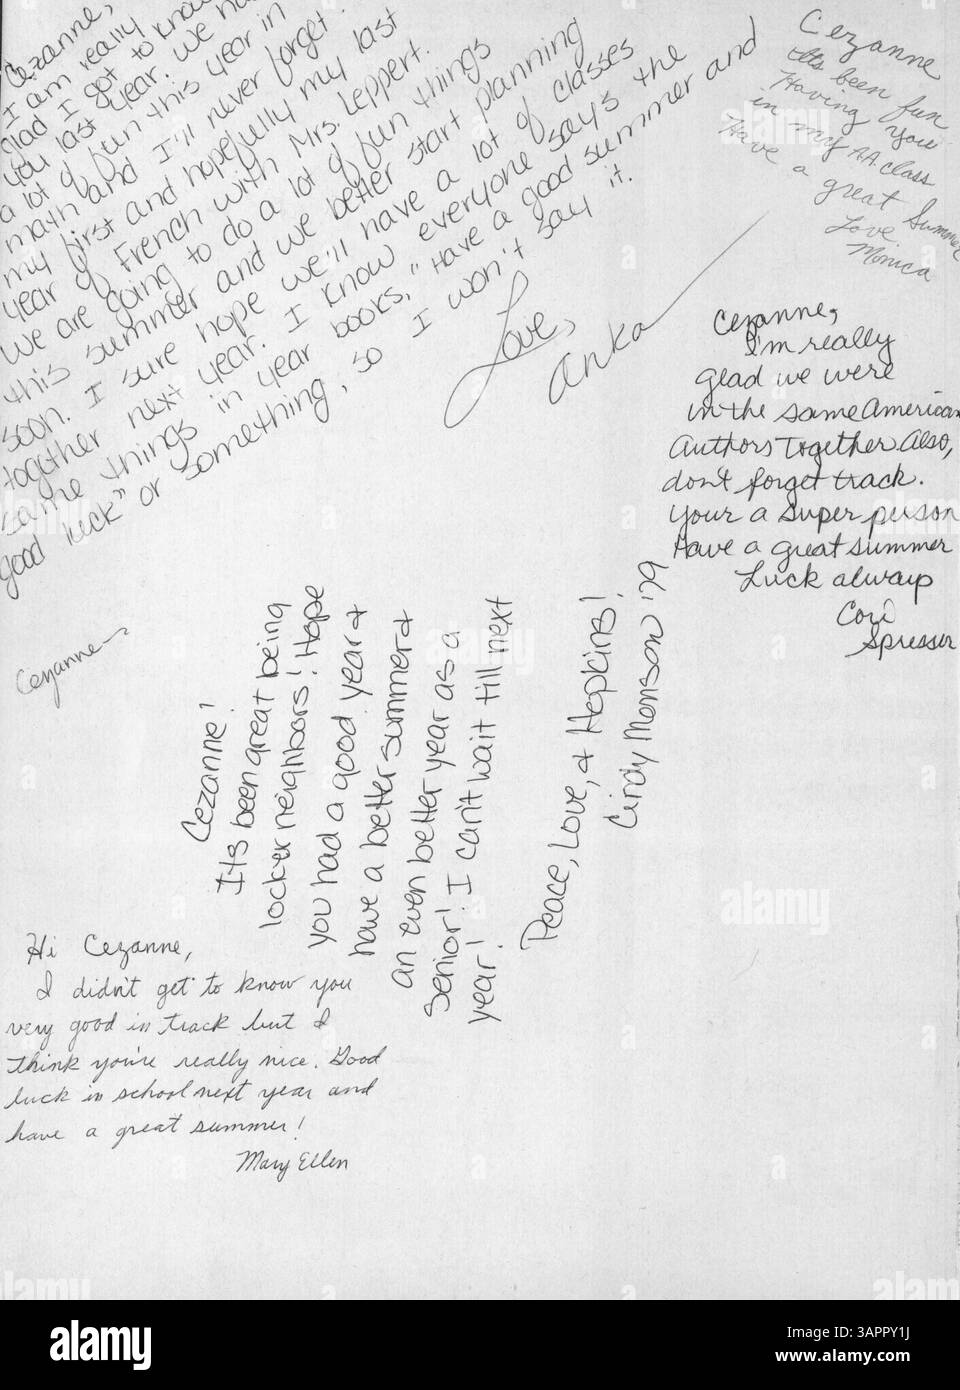 Cezanne,
I am really
glad I got to know
you last year. We ha
a lot of fun this year in
math and I'll never forget
my first and hopefully my last
year of French with Mrs. Leppert.
We are going to do a lot of fun things
this summer and we better start planning
soon. I sure hope we'll have a lot of classes
together next year. I know everyone say's the
same things in year books, "Have a good summer and
good luck" or something, so I won't say it.
Love,
Anka
Cezanne
It's been fun
Having you
in my A.A. class
Have a great Summer
Love
Monica
Cezanne,
I'm really
glad we were
in the same American
Authors Together Also,
don't forget track.
Your a super person
Have a great summer
Luck always
Cori
Spresser
Cezanne
Cezanne!
Its been great being
locker neighbors! Hope
you had a good year &
have a better summer &
an even better year as a
Senior! I can't wait till next
year!
Peace, Love, & Hopkins!
Cindy Monson '79
Hi Cezanne,
I didn't get to know you
very good in track but I
think you're really nice. Good
luck in school next year and
have a great summer!
Mary Ellen
alamy
Image ID: 3APPY1J
www.alamy.com